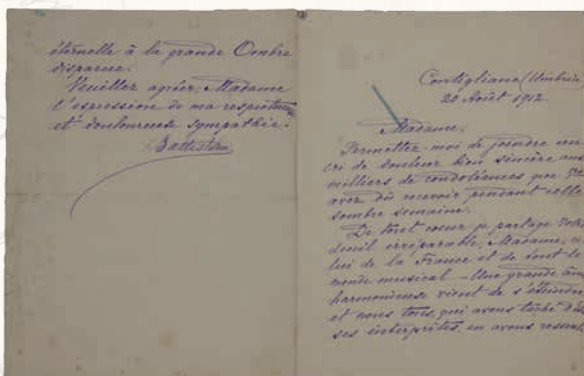 éternelle à la grande Ombre
disparue.
Veuillez agréer, Madame
l'expression de ma respectueuse
et douloureuse sympathie.
Battistini
Contigliano (Umbria
20 Août 1912.
Madame,
Permettez-moi de joindre un
cri de douleur bien sincère aux
milliers de condoléances que
avez dû recevoir pendant cette
sombre semaine.
De tout coeur je partage votre
deuil irréparable, Madame, ce
lui de la France et de tout le
monde musical – Une grande âme
harmonieuse vient de s'éteindre
et nous tous, qui avons tâché
ses interprètes, en avons